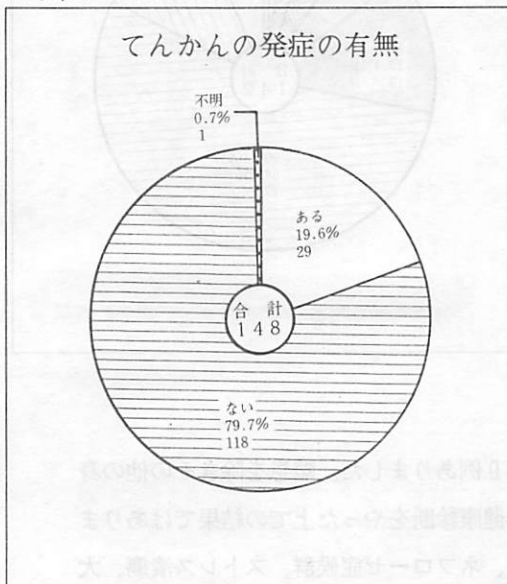 てんかんの発症の有無
不明
0.7%
1
ある
19.6%
29
合計
148
ない
79.7%
118